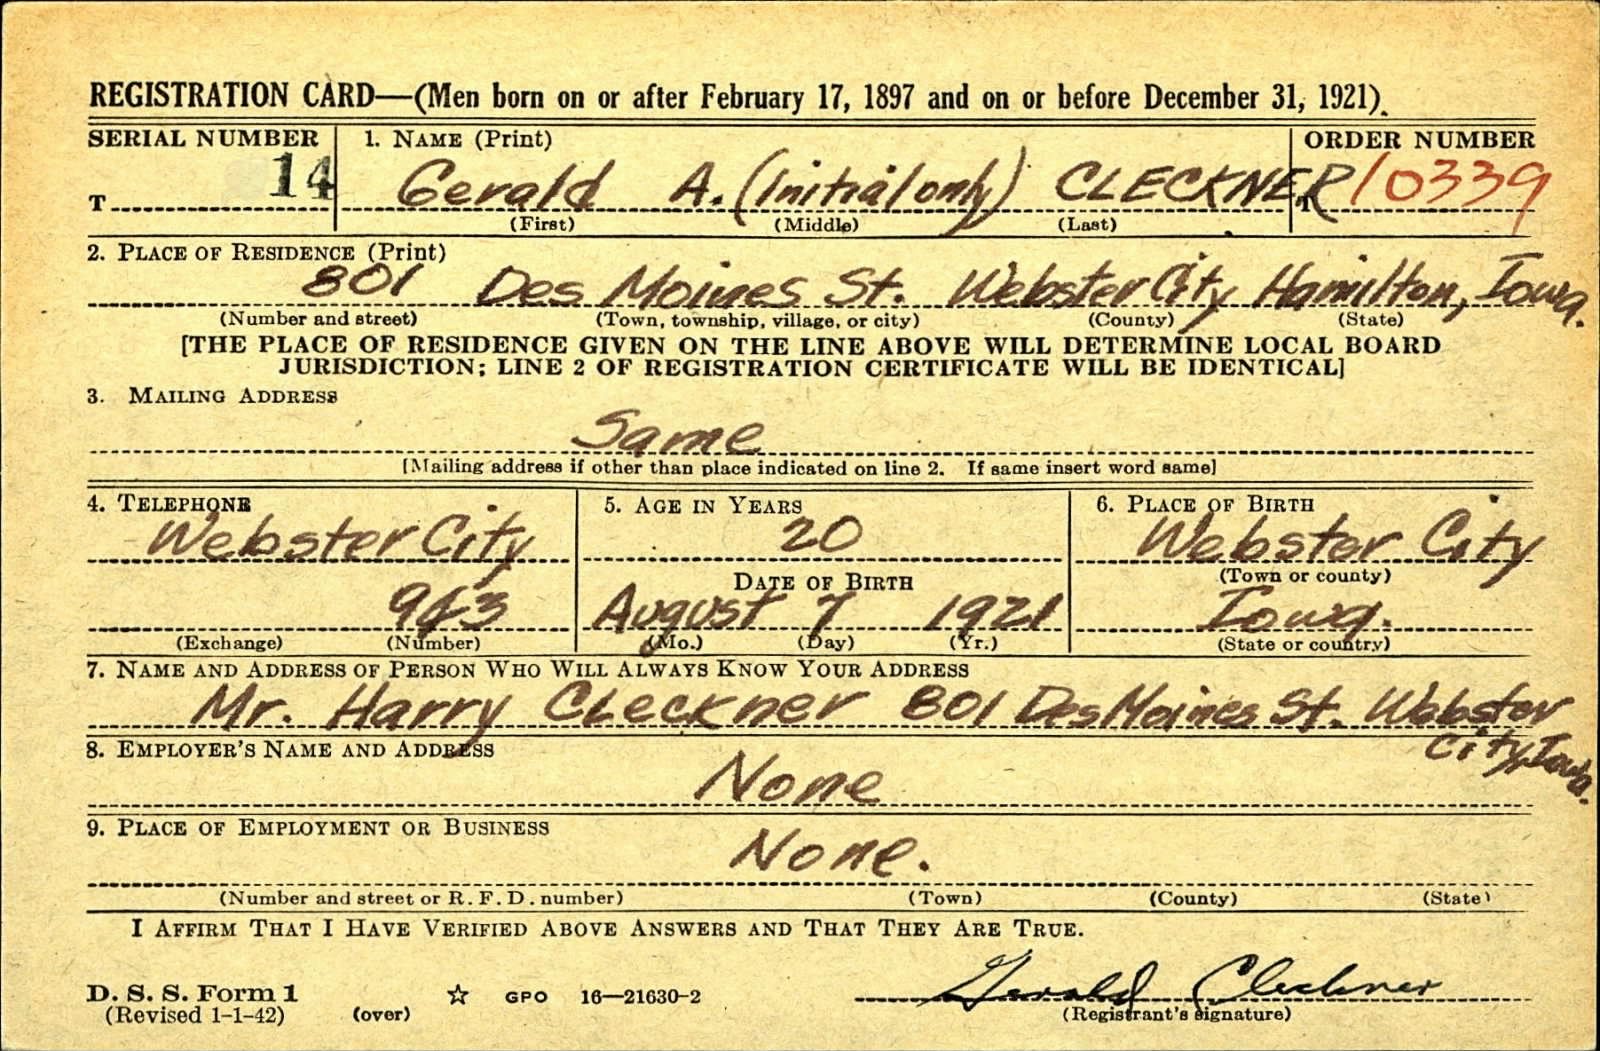 REGISTRATION CARD—(Men born on or after February 17, 1897 and on or before December 31, 1921)
SERIAL NUMBER 1. NAME (Print) ORDER NUMBER
T 14 Gerald A. (Initial only) CLECKNER T 10339
(First) (Middle) (Last)
2. PLACE OF RESIDENCE (Print)
801 Des Moines St. Webster City Hamilton, Iowa.
(Number and street) (Town, township, village, or city) (County) (State)
[THE PLACE OF RESIDENCE GIVEN ON THE LINE ABOVE WILL DETERMINE LOCAL BOARD
JURISDICTION; LINE 2 OF REGISTRATION CERTIFICATE WILL BE IDENTICAL]
3. MAILING ADDRESS
Same
[Mailing address if other than place indicated on line 2. If same insert word same]
4. TELEPHONE 5. AGE IN YEARS 6. PLACE OF BIRTH
Webster City 20 Webster City
(Town or county)
DATE OF BIRTH
August 7 1921 Iowa.
(Exchange) (Number) (Mo.) (Day) (Yr.) (State or country)
7. NAME AND ADDRESS OF PERSON WHO WILL ALWAYS KNOW YOUR ADDRESS
Mr. Harry Cleckner 801 Des Moines St. Webster
City, Iowa.
8. EMPLOYER'S NAME AND ADDRESS
None
9. PLACE OF EMPLOYMENT OR BUSINESS
None.
(Number and street or R. F. D. number) (Town) (County) (State)
I AFFIRM THAT I HAVE VERIFIED ABOVE ANSWERS AND THAT THEY ARE TRUE.
Gerald Cleckner
D. S. S. Form 1 GPO 16—21630-2
(Revised 1-1-42) (over) (Registrant's signature)